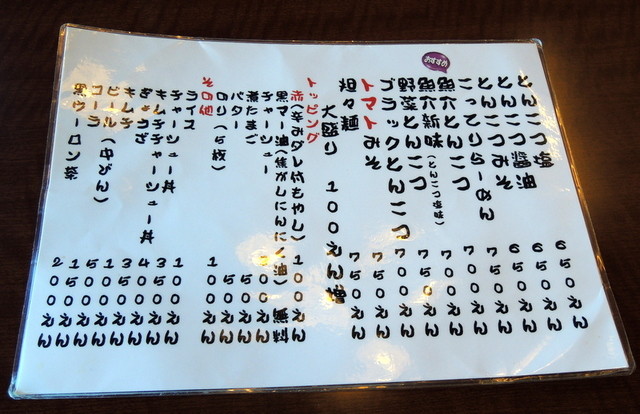 とんこつ塩 650えん
とんこつ醤油 650えん
とんこつみそ 650えん
こってりらーめん 750えん
魚介とんこつ 700えん
おすすめ
魚介新味(とんこつ塩味) 700えん
野菜とんこつ 700えん
ブラックとんこつ 700えん
トマトみそ 750えん
坦々麺 750えん
大盛り 100えん増
トッピング
赤(辛みダレ付もやし) 100えん
黒マー油(焦がしにんにく油) 無料
チャーシュー
煮たまご 50えん
バター 50えん
のり(5枚) 100えん
その他
ライス 100えん
チャーシュー丼 350えん
キムチチャーシュー丼 400えん
ぎょうざ 350えん
キムチ 100えん
ビール(中びん) 500えん
コーラ 150えん
黒ウーロン茶 200えん